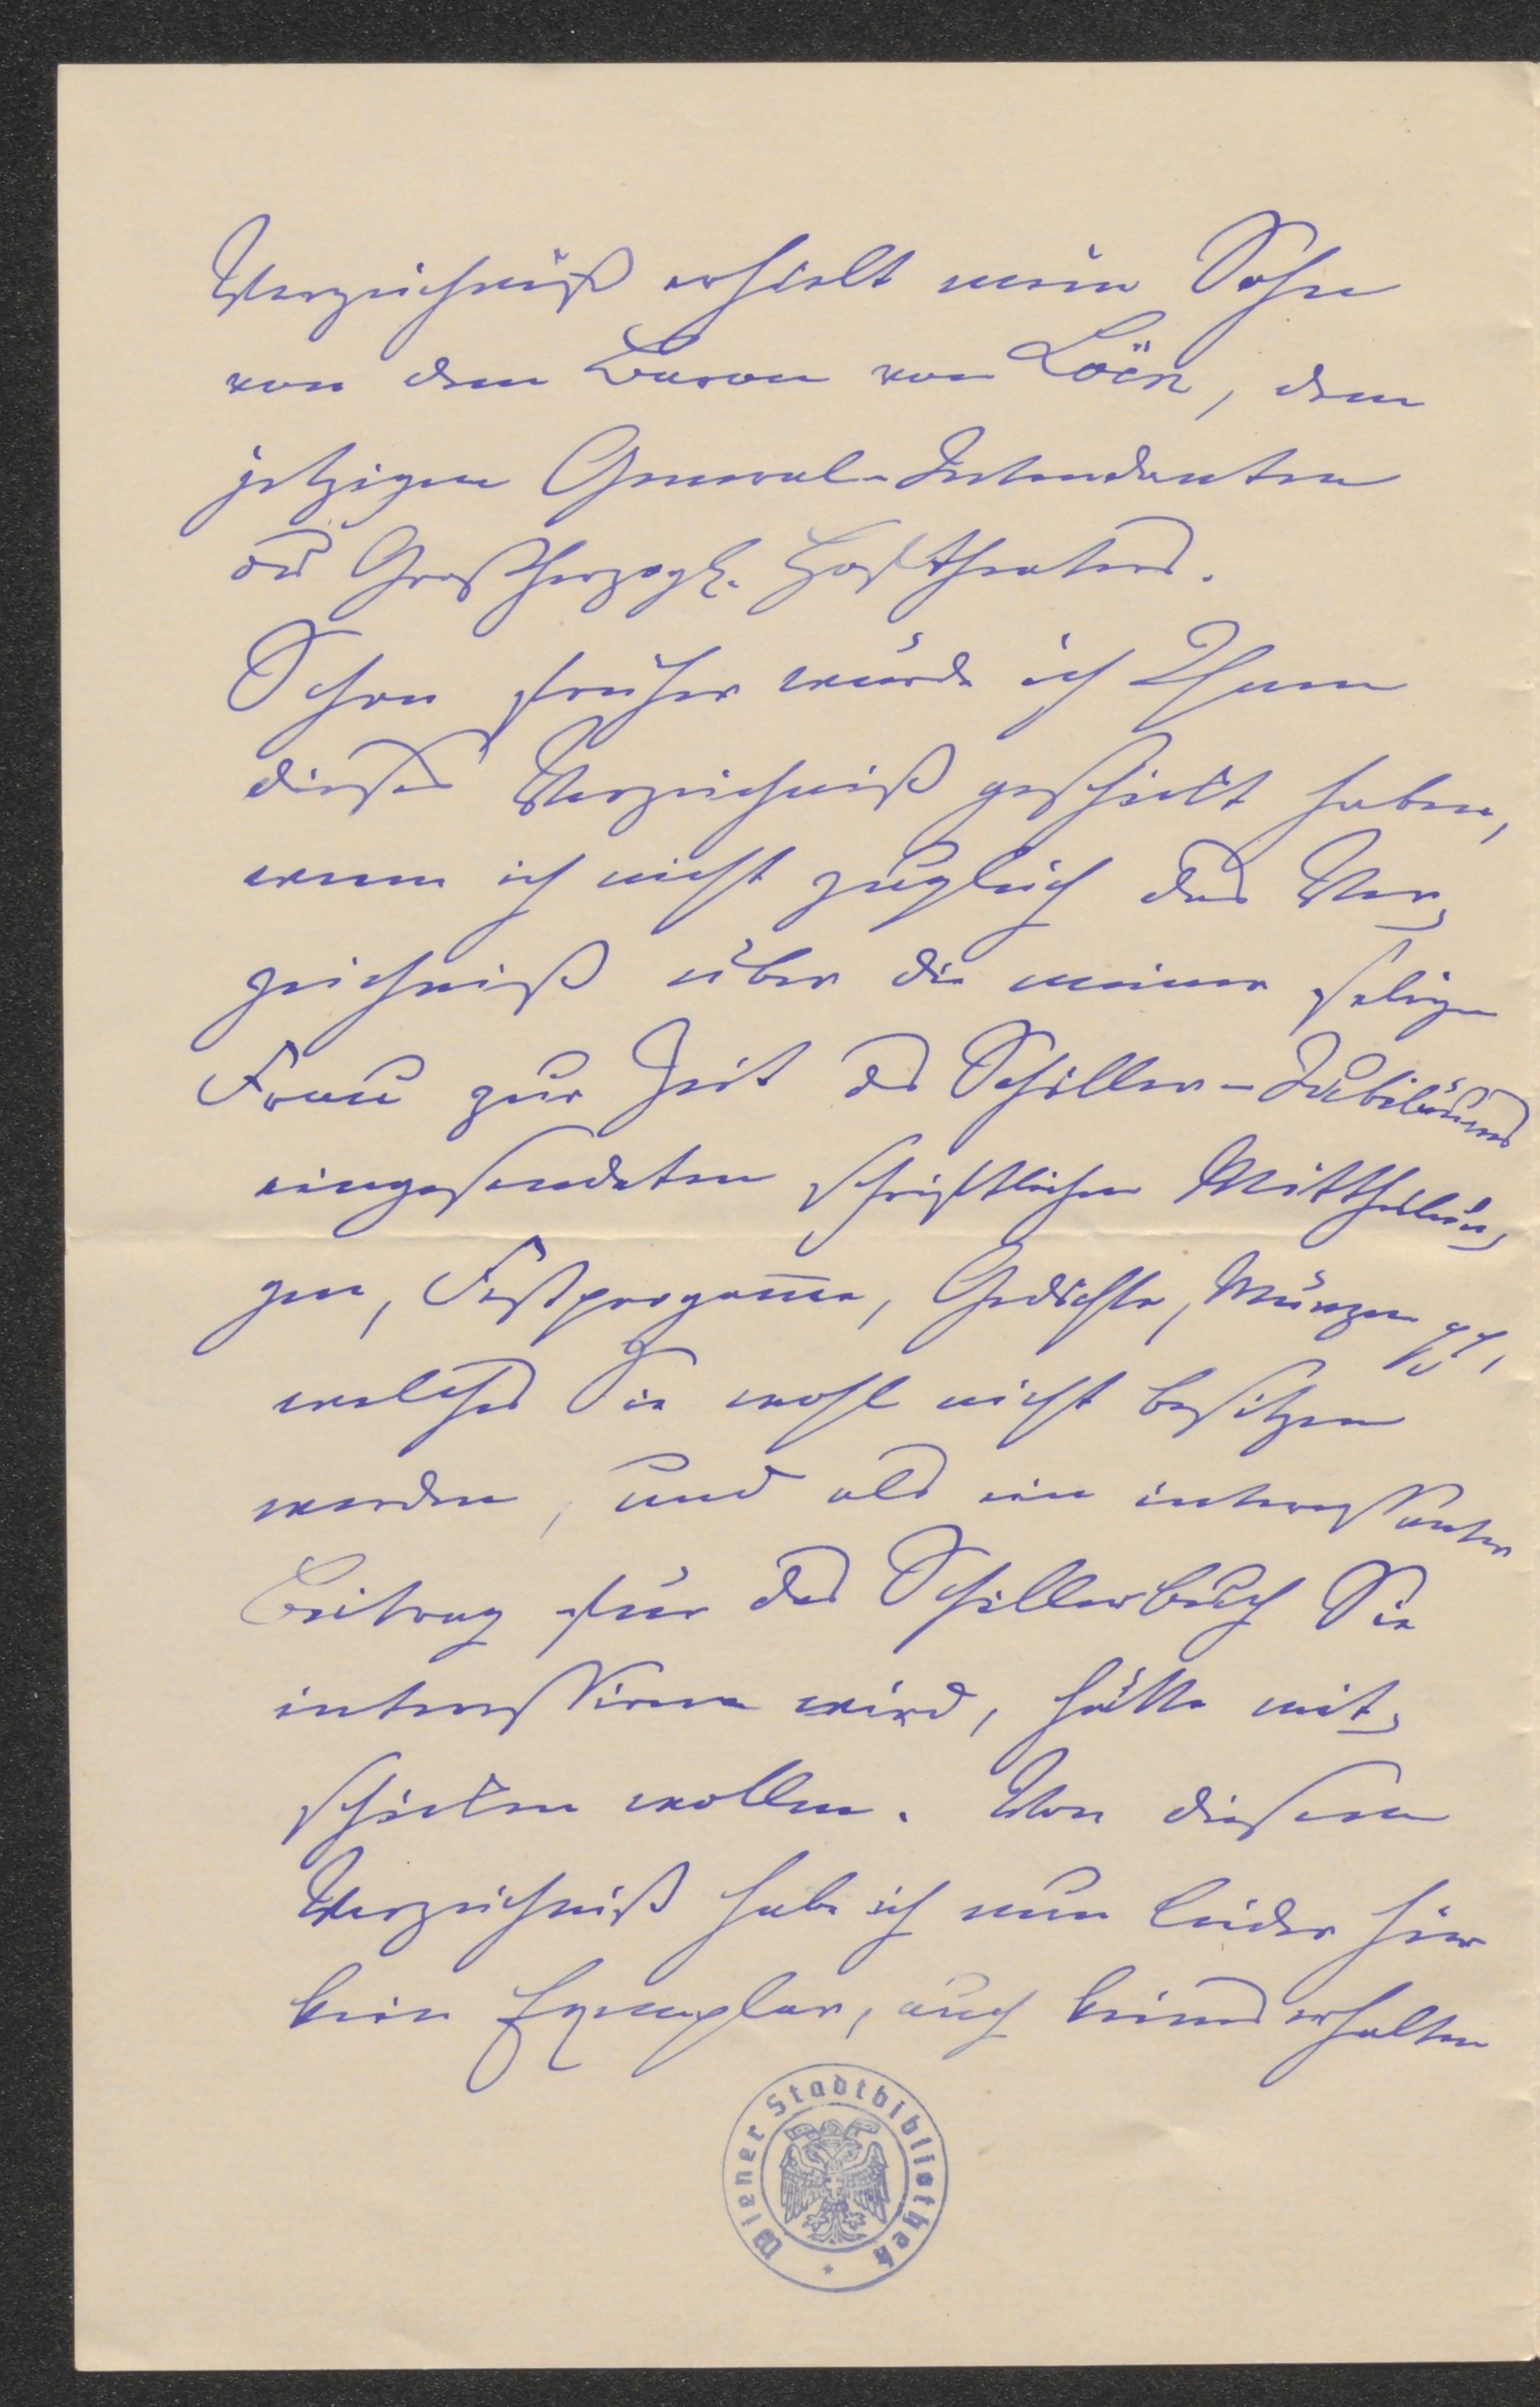 Verzeichniß erhielt mein Sohn
von dem Baron von Loën, dem
jetzigen General-Intendanten
des Großherzogl. Hoftheaters.
Schon früher würde ich Ihnen
dieses Verzeichniß geschickt haben,
wenn ich nicht zugleich das Ver-
zeichniß über die meiner seligen
Frau zur Zeit des Schiller-Jubiläums
eingesendeten schriftlichen Mittheilun-
gen, Festprogramme, Gedichte, Münzen
welches Sie wohl nicht besitzen
werden, und als ein interessanter
Beitrag für das Schillerbuch Sie
interessiren wird, hätte mit-
schicken wollen. Von diesem
Verzeichniß habe ich nun leider hier
kein Exemplar, auch keines erhalten
Wiener Stadtbibliothek